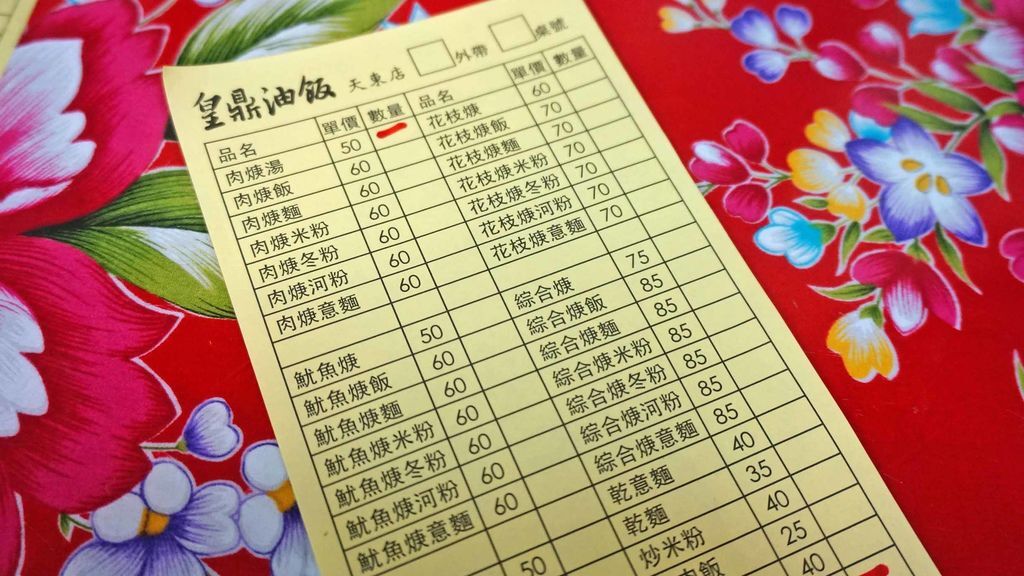 皇鼎油飯 天東店 外帶 桌號
品名 單價 數量 品名 單價 數量
肉焿湯 50 花枝焿 60
肉焿飯 60 花枝焿飯 70
肉焿麵 60 花枝焿麵 70
肉焿米粉 60 花枝焿米粉 70
肉焿冬粉 60 花枝焿冬粉 70
肉焿河粉 60 花枝焿河粉 70
肉焿意麵 60 花枝焿意麵 70
魷魚焿 50 綜合焿 75
魷魚焿飯 60 綜合焿飯 85
魷魚焿麵 60 綜合焿麵 85
魷魚焿米粉 60 綜合焿米粉 85
魷魚焿冬粉 60 綜合焿冬粉 85
魷魚焿河粉 60 綜合焿河粉 85
魷魚焿意麵 60 綜合焿意麵 85
50 乾意麵 40
乾麵 35
炒米粉 40
肉飯 25
40